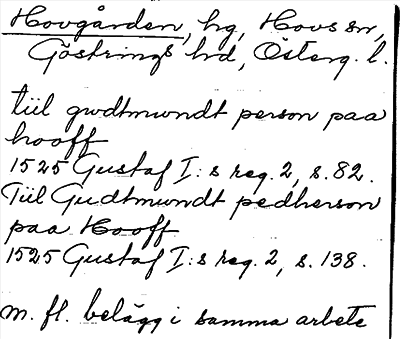 Hovgården, hg, Hovs sn,
Göstrings hd, Österg. l.
tiil gwdtmwndt person paa
hooff
1525 Gustaf I:s reg. 2, s. 82.
Tiil Gudtmundt pedherson
paa Hooff
1525 Gustaf I:s reg. 2, s. 138.
m. fl. belägg i samma arbete